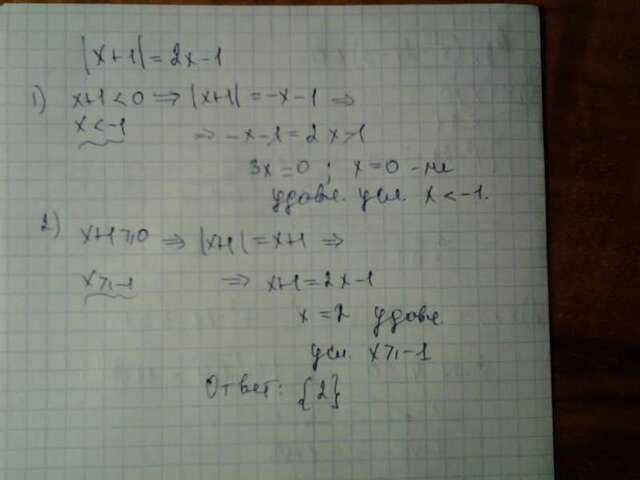 |x+1|=2x-1
1) x+1<0 ⇒ |x+1|=-x-1 ⇒
x<-1 ⇒ -x-1=2x-1
3x=0; x=0 - не
удовл. усл. x<-1.
2) x+1⩾0 ⇒ |x+1|=x+1 ⇒
x⩾-1 ⇒ x+1=2x-1
x=2 удовл.
усл. x⩾-1
Ответ: {2}